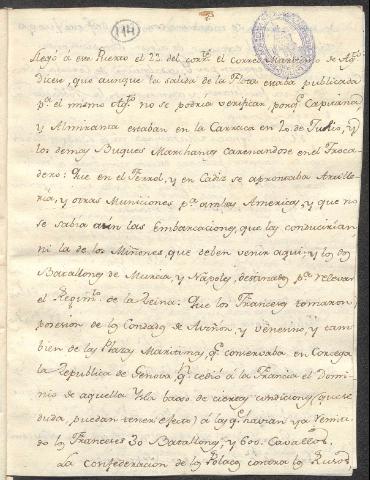 114
llegó á ese Puerto el 22. del cort.e el correo Maritimo de Ag.to
Dicen, que aunque la salida de la Flota estaba publicada
p.a el mismo Ag.to no se podria verificar, porq.e Capitana,
y Almiranta estaban en la Carraca en 20. de Julio, y
los demas Buques Marchantes carenandose en el Troca-
dero: Que en el Ferrol, y en Cadiz se aprontaba Artille-
ria, y otras Municiones p.a ambas Americas, y que no
se sabia aún las Embarcaciones, que las conducirian,
ni la de los Miñones, que deben venir aqui, y los dos
Batallones de Murcia, y Napoles, destinados p.a relevar
el Regim.to de la Reina: Que los Franceses tomaron
posesion de los Condados de Aviñon, y Venesino, y tam-
bien de las Plazas Maritimas, q.e conservaba en Corcega
la Republica de Genova, q.e cedió á la Francia el Domi-
nio de aquella Ysla bajo de ciertas condiciones (que se
duda, puedan tener efecto) á las q.e havian ya remiti-
do los Franceses 30 Batallones, y 600. Cavallos.
La confederacion de los Polacos contra los Rusos